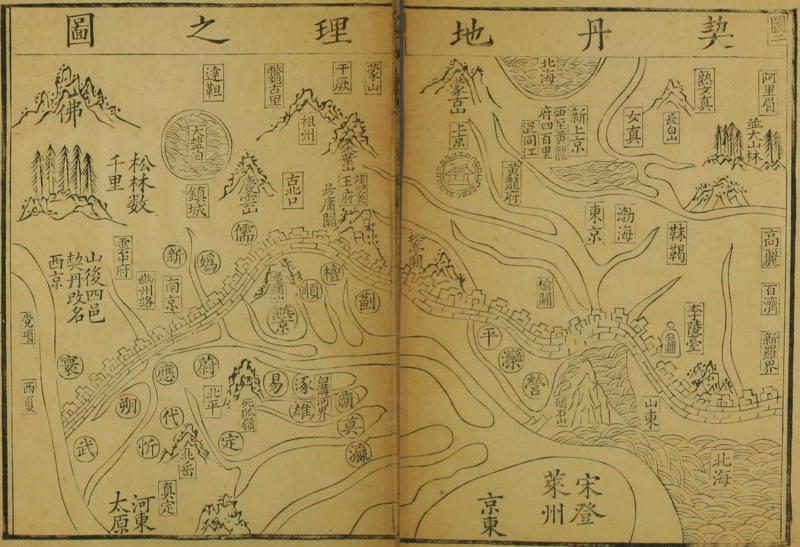 契丹地理之圖
圖二
阿里眉
熟女真
長白山
女真
新上京
西至黃龍
府四百里
混同江
北海
上京
黃龍府
渤海
東京
靺鞨
高麗
百濟
新羅界
李陵臺
榆關
松亭關
平
灤
營
碣石山
山東
北海
宋登
萊州
京東
蒙山
干厥
達靼
祖州
大鹽泊
佛
松林數
千里
鎮城
古北口
王府
居庸關
儒
媯
新
南京
幽州路
雲中府
山後四邑
契丹改名
西京
党項
西夏
居庸山
燕京
順
檀
薊
寰
應
蔚
朔
代
武
忻
北平
易
涿
雄
霸
莫
瀛
定
北岳
真定
河東
太原